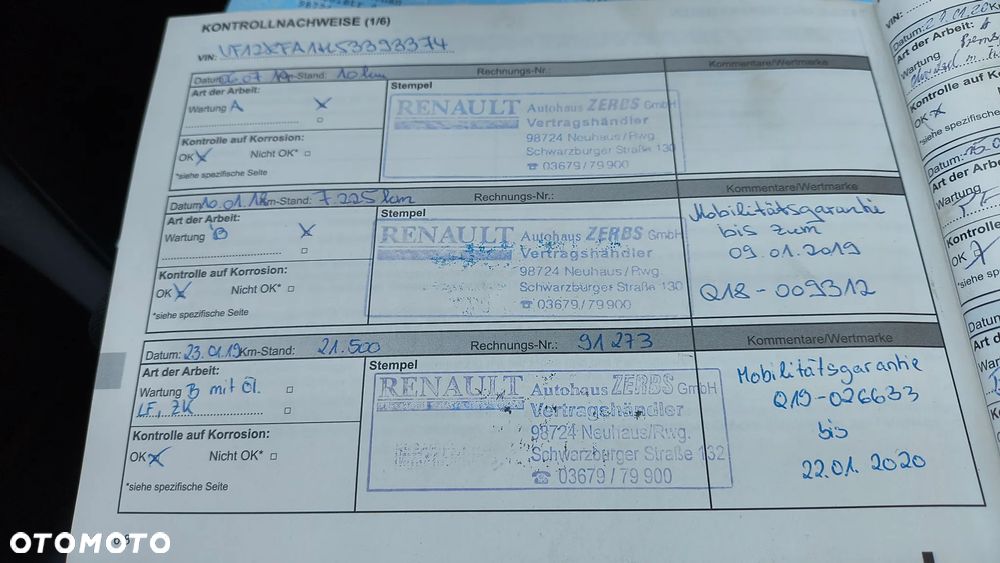 KONTROLLNACHWEISE (1/6)
VIN:
Datum: Km-Stand: 10 km Rechnungs-Nr.: Kommentare/Wertmarke
Art der Arbeit:
Wartung A X
Kontrolle auf Korrosion:
OK X Nicht OK*
*siehe spezifische Seite
Stempel
RENAULT Autohaus ZERBS GmbH
Vertragshändler
98724 Neuhaus/Rwg.
Schwarzburger Straße 130
☎ 03679/79 900
Datum: 10.01.18 Km-Stand: 7.225 km Rechnungs-Nr.: Kommentare/Wertmarke
Art der Arbeit:
Wartung B X
Kontrolle auf Korrosion:
OK X Nicht OK*
*siehe spezifische Seite
Stempel
RENAULT Autohaus ZERBS GmbH
Vertragshändler
98724 Neuhaus/Rwg.
Schwarzburger Straße 130
☎ 03679/79 900
Mobilitätsgarantie
bis zum
09.01.2019
Q18-009312
Datum: 23.01.19 Km-Stand: 21.500 Rechnungs-Nr.: 91 273 Kommentare/Wertmarke
Art der Arbeit:
Wartung B mit Öl.
LF, ZK
Kontrolle auf Korrosion:
OK X Nicht OK*
*siehe spezifische Seite
Stempel
RENAULT Autohaus ZERBS GmbH
Vertragshändler
98724 Neuhaus/Rwg.
Schwarzburger Straße 132
☎ 03679 / 79 900
Mobilitätsgarantie
Q19-026633
bis
22.01.2020
VIN:
Datum:
Art der Arbeit:
Wartung
Kontrolle
OK X
*siehe spezifische
Datum:
Art der
Wartung
Kontrolle
OK
*siehe spezi
Datum
Art d
OTOMOTO